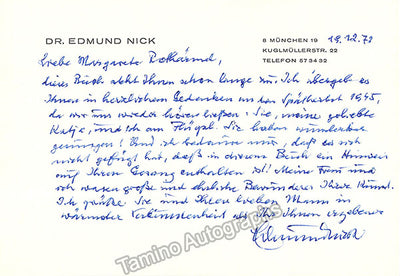 DR. EDMUND NICK
8 MÜNCHEN 19
KUGLMÜLLERSTR. 22
TELEFON 57 34 32
19.12.72
Liebe Margarete
dieses Buch steht Ihnen schon lange zu. Ich übergebe es
Ihnen in herzlichem Gedenken an den Spätherbst 1945,
da wir uns wieder hören ließen: Sie, meine geliebte
Katja, und ich am Flügel. Sie haben wunderbar
gesungen! Und ich bedaure nur, daß es sich
nicht gefügt hat, daß in diesem Buch ein Hinweis
auf Ihren Gesang enthalten ist! Meine Frau und
ich waren große und ehrliche Bewunderer Ihrer Kunst.
Ich grüße Sie und Ihren lieben Mann in
wärmster Verbundenheit als Ihr Ihnen ergebener
Edmund Nick
Tamino Autographs